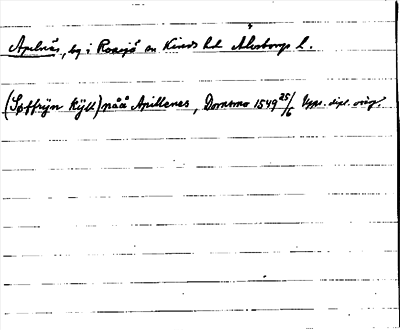 Apelnäs, by i Roasjö sn Kinds hd Älvsborgs l.
(Søffryn Kyll) påå Apillenes, Domsmo 1549 25/6 Upps. dipl. orig.